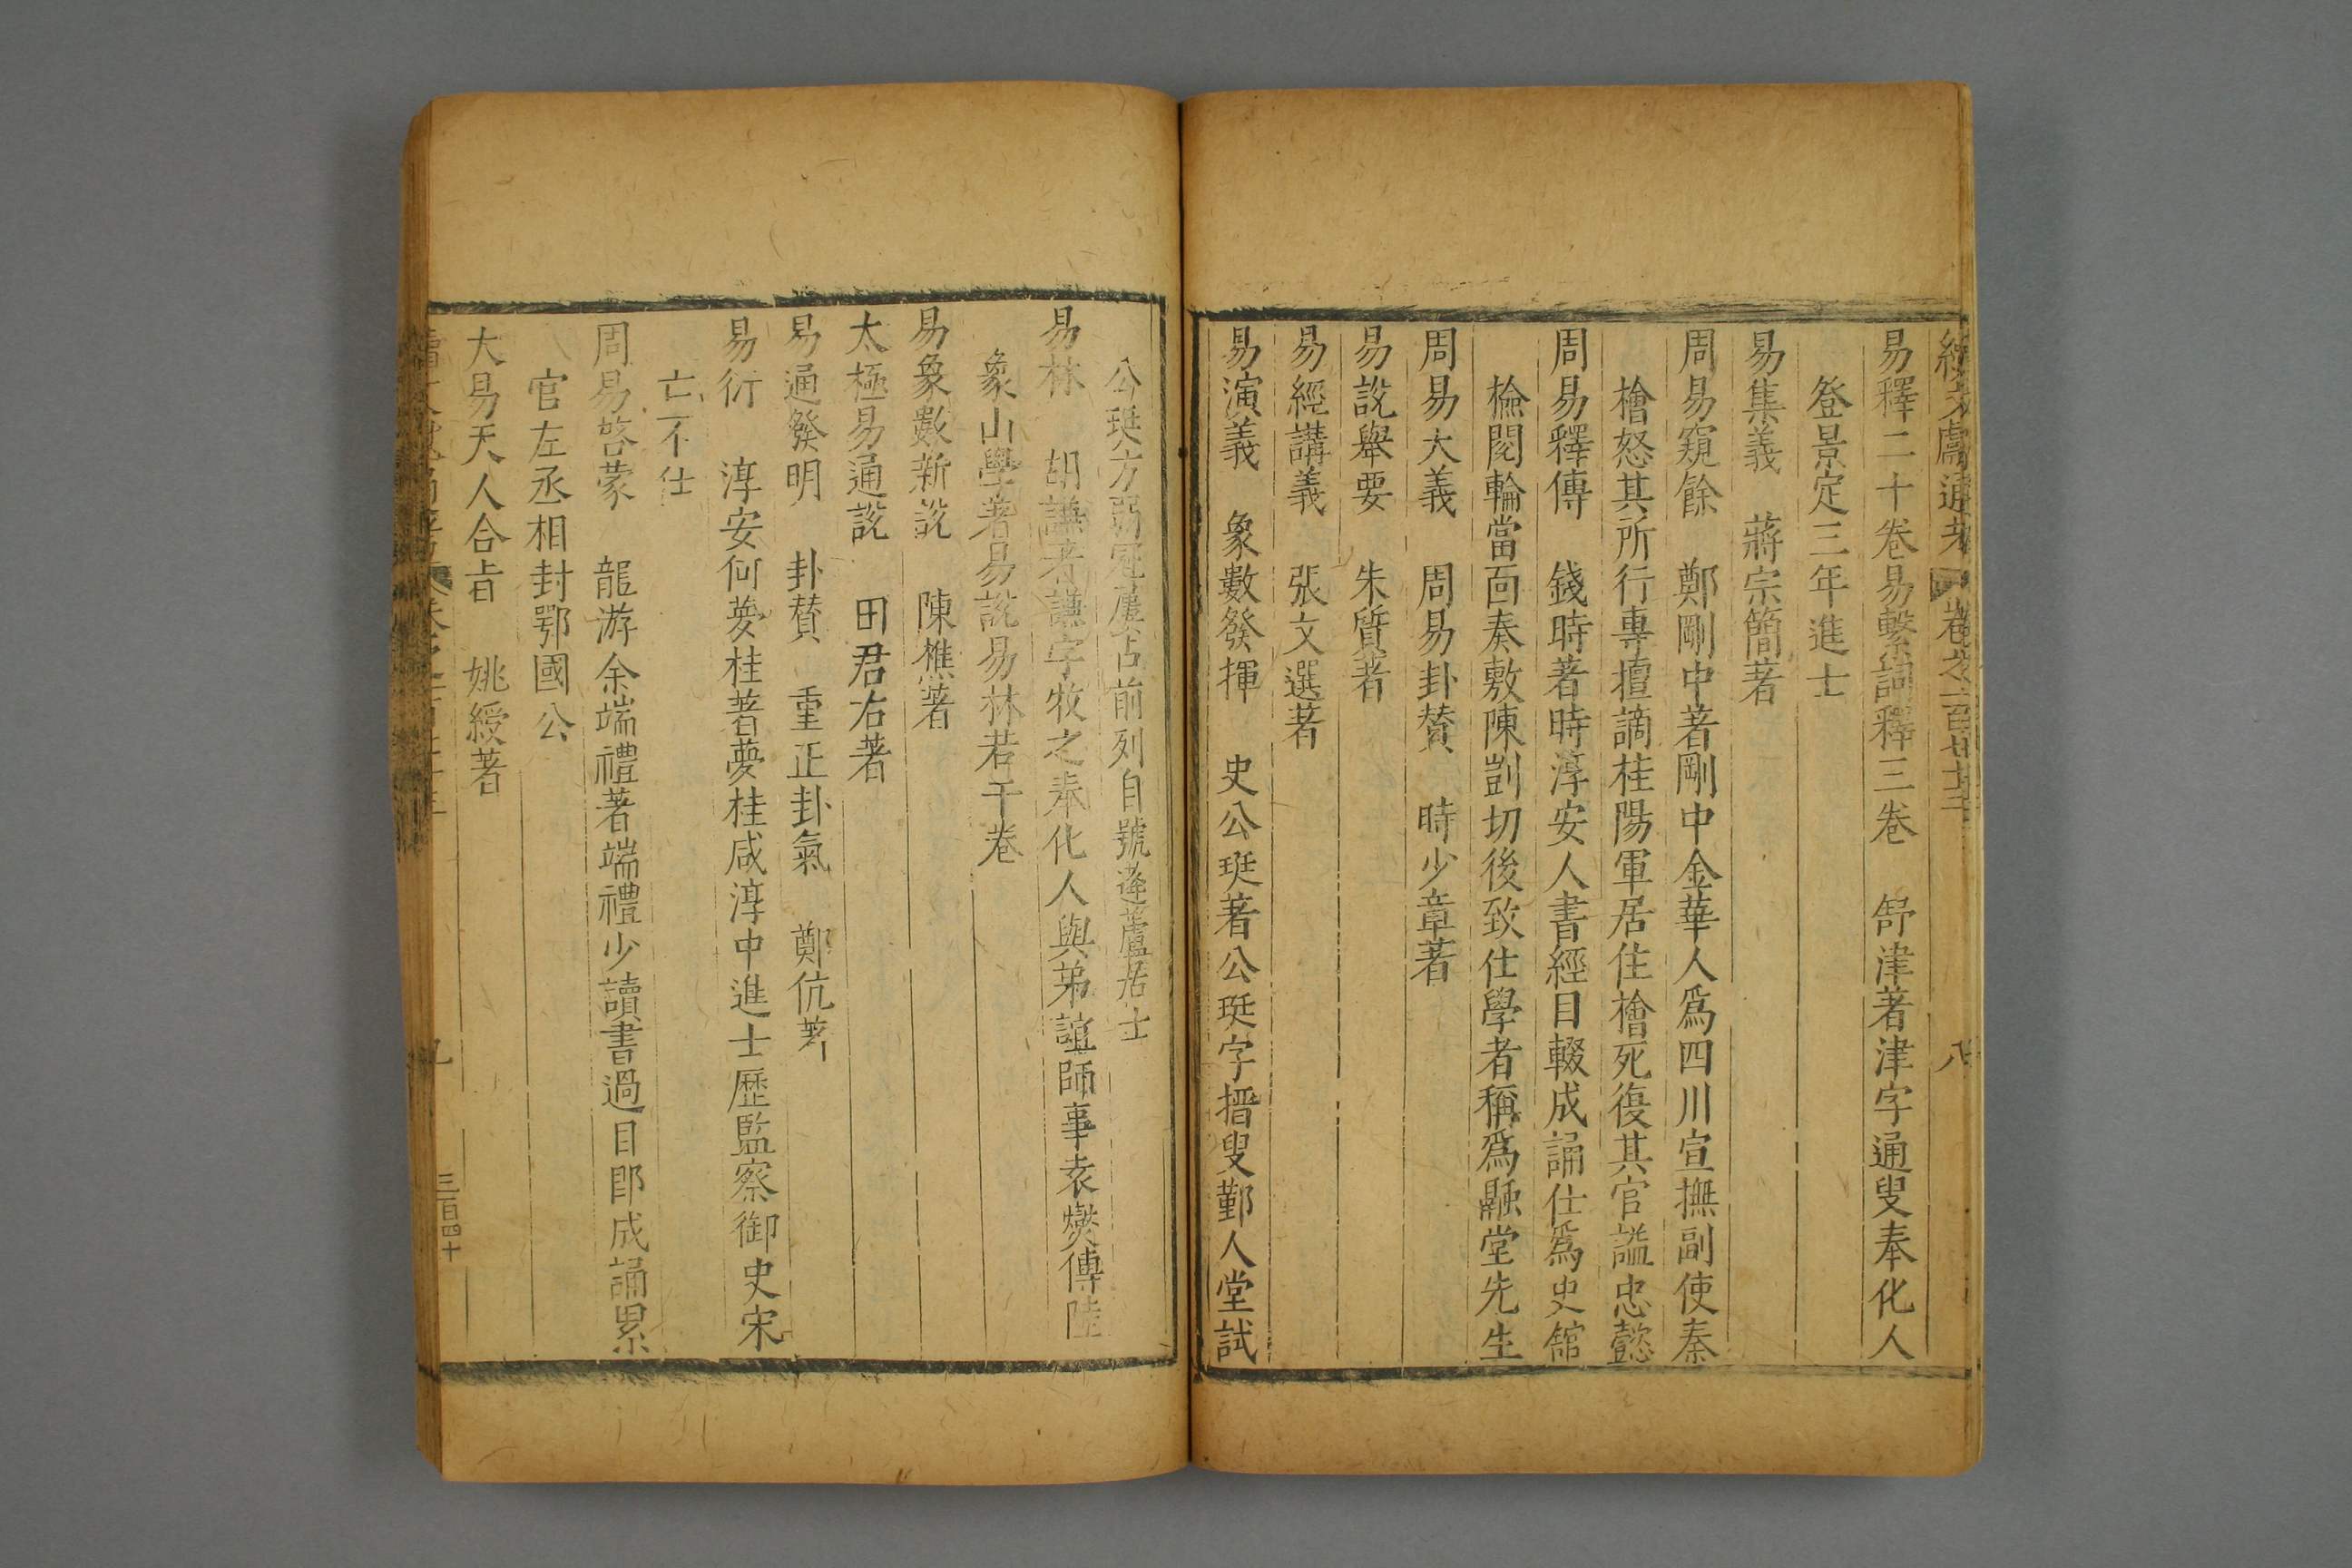 易釋二十卷易繫詞釋三卷　舒津著津字通叟奉化人
登景定三年進士
易集義　蔣宗簡著
周易窺餘　鄭剛中著剛中金華人爲四川宣撫副使秦
檜怒其所行專擅謫桂陽軍居住檜死復其官謚忠懿
周易釋傳　錢時著時淳安人書經目輟成誦仕爲史館
檢閱輪當面奏敷陳剴切後致仕學者稱爲融堂先生
周易大義　周易卦贊　時少章著
易說舉要　朱質著
易經講義　張文選著
易演義　象數發揮　史公珽著公珽字搢叟鄞人堂試
公珽方弱冠屢占前列自號蘧蘆居士
易林　胡謙著謙字牧之奉化人與弟誼師事袁燮傳陸
象山學著易說易林若干卷
易象數新說　陳樵著
太極易通說　田君右著
易通發明　卦贊　重正卦氣　鄭伉著
易衍　淳安何夢桂著夢桂咸淳中進士歷監察御史宋
亡不仕
周易啓蒙　龍游余端禮著端禮少讀書過目即成誦累
官左丞相封鄂國公
大易天人合旨　姚綬著
九
三百四十